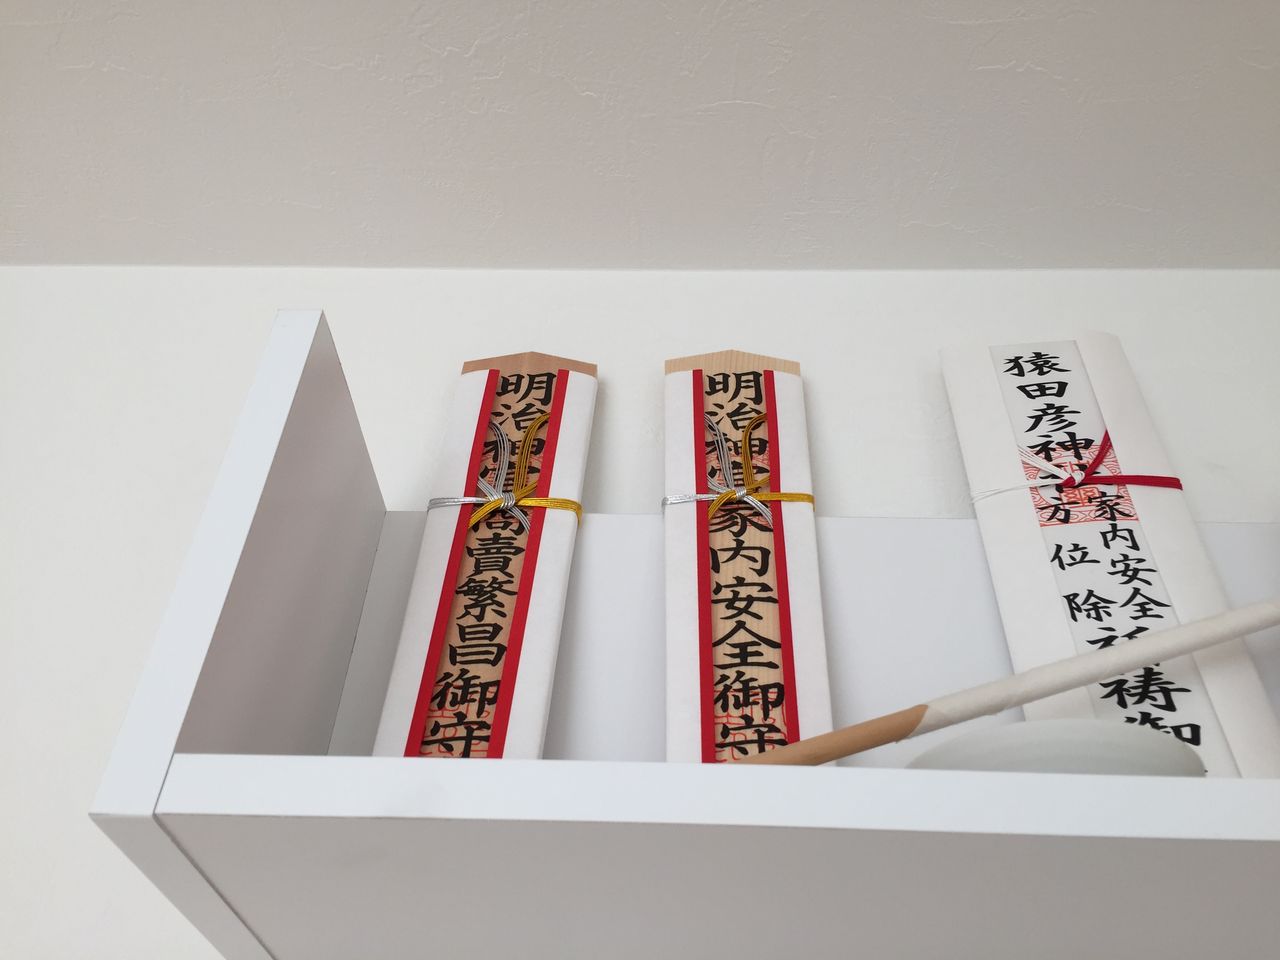 明治神宮商賣繁昌御守
明治神宮家内安全御守
猿田彦神社
家内安全
方位除
祈祷御